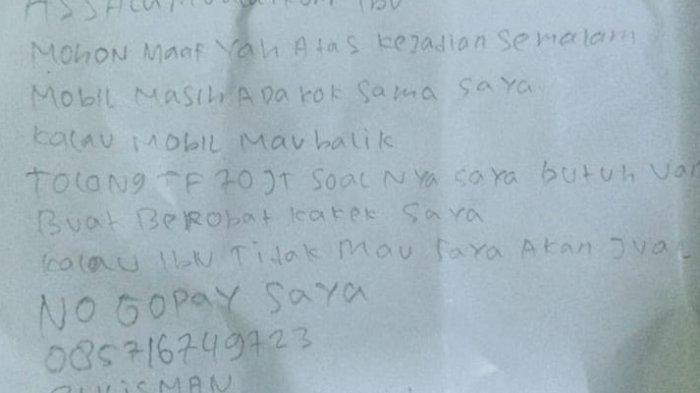 ASSALAMUALAIKUM IBU
MOHON MAAF YAH ATAS KEJADIAN SEMALAM
MOBIL MASIH ADA KOK SAMA SAYA
KALAU MOBIL MAU BALIK
TOLONG TF 70JT SOALNYA SAYA BUTUH UAN
BUAT BEROBAT KAKEK SAYA
KALAU IBU TIDAK MAU SAYA AKAN JUAL
NO GOPAY SAYA
085716749723